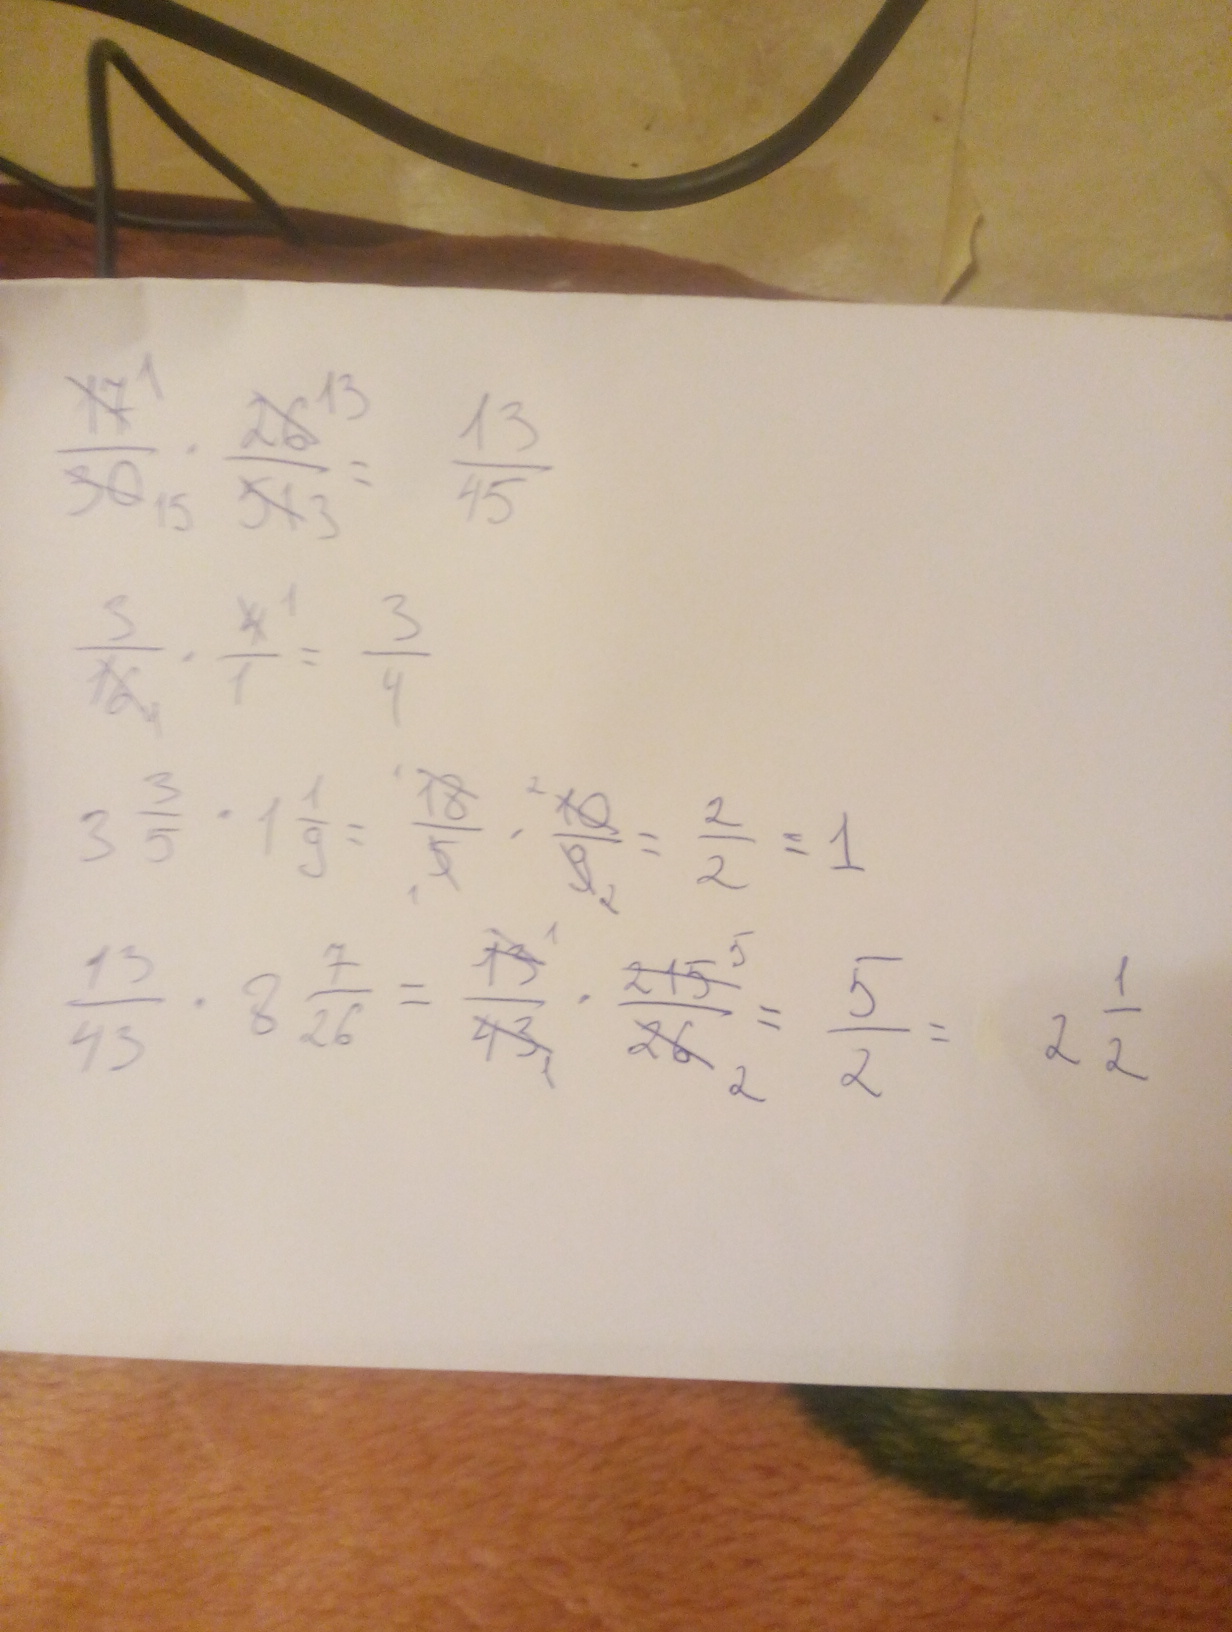 17/30 1 15 · 26/51 13 3 = 13/45
3/16 4 · 4/1 1 = 3/4
3 3/5 · 1 1/9 = 1 18/5 1 · 2 10/9 2 = 2/2 = 1
13/43 · 8 7/26 = 13/43 1 1 · 215/26 5 2 = 5/2 = 2 1/2